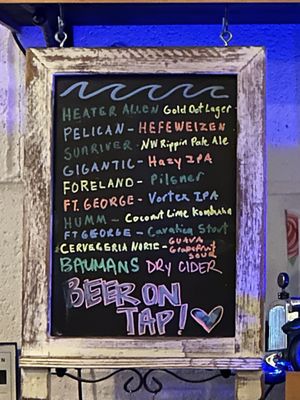 HEATER ALLEN Gold Out Lager
PELICAN - HEFEWEIZEN
SUNRIVER - NW Rippin Pale Ale
GIGANTIC - Hazy IPA
FORELAND - Pilsner
FT. GEORGE - Vortex IPA
HUMM - Coconut Lime Kombuha
FT GEORGE - Cavatica Stout
CERVECERIA NORTE - GUAVA
Grapefruit
SOUR
BAUMANS DRY CIDER
BEER ON
TAP!